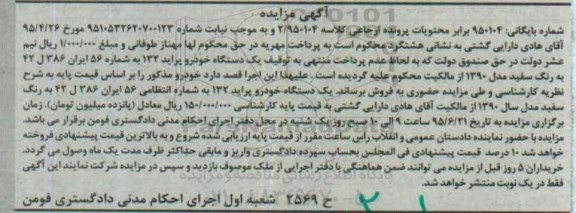 آگهی مزایده
شماره بایگانی: ۹۵۰۱۰۴ برابر محتویات پرونده ارجاعی کلاسه ۲/۹۵۰۱۰۴ و به موجب نیابت شماره ۹۵۱۰۵۳۲۶۲۰۷۰۰۱۲۳ مورخ ۹۵/۴/۲۶
آقای هادی دارایی گشتی به نشانی هشتگرد محکوم است به پرداخت مهریه در حق محکوم لها مهناز طوفانی و مبلغ ۱/۰۰۰/۰۰۰ ریال نیم
عشر دولت در حق صندوق دولت که به لحاظ عدم پرداخت منتهی به توقیف یک دستگاه خودرو پراید ۱۳۲ به شماره ۵۶ ایران ۳۸۶ ل ۴۲
به رنگ سفید مدل ۱۳۹۰ از مالکیت محکوم علیه گردیده است. علیهذا این اجرا قصد دارد خودرو مذکور را بر اساس قیمت پایه به شرح
نظریه کارشناسی و طی مزایده حضوری به فروش برساند. یک دستگاه خودرو پراید ۱۳۲ به شماره انتظامی ۵۶ ایران ۳۸۶ ل ۴۲ به رنگ
سفید مدل سال ۱۳۹۰ از مالکیت آقای هادی دارایی گشتی به قیمت پایه کارشناسی ۱۵۰/۰۰۰/۰۰۰ ریال معادل (پانزده میلیون تومان). زمان
برگزاری مزایده به تاریخ ۹۵/۶/۲۱ ساعت ۹ الی ۱۰ صبح روز یک شنبه در محل دفتر اجرای احکام مدنی دادگستری فومن برقرار می باشد.
مزایده با حضور نماینده دادستان عمومی و انقلاب راس ساعت مقرر از قیمت پایه ارزیابی شده شروع و به بالاترین قیمت پیشنهادی فروخته
خواهد شد ۱۰ درصد قیمت پیشنهادی فی المجلس بحساب سپرده دادگستری واریز و مابقی حداکثر ظرف مدت یک ماه وصول می گردد.
خریداران ۵ روز قبل از مزایده می توانند ضمن هماهنگی با دفتر اجرایی از ملک موصوف بازدید و سپس در مزایده شرکت نمایند این آگهی
فقط در یک نوبت منتشر خواهد شد.
خ ۲۵۶۹ شعبه اول اجرای احکام مدنی دادگستری فومن